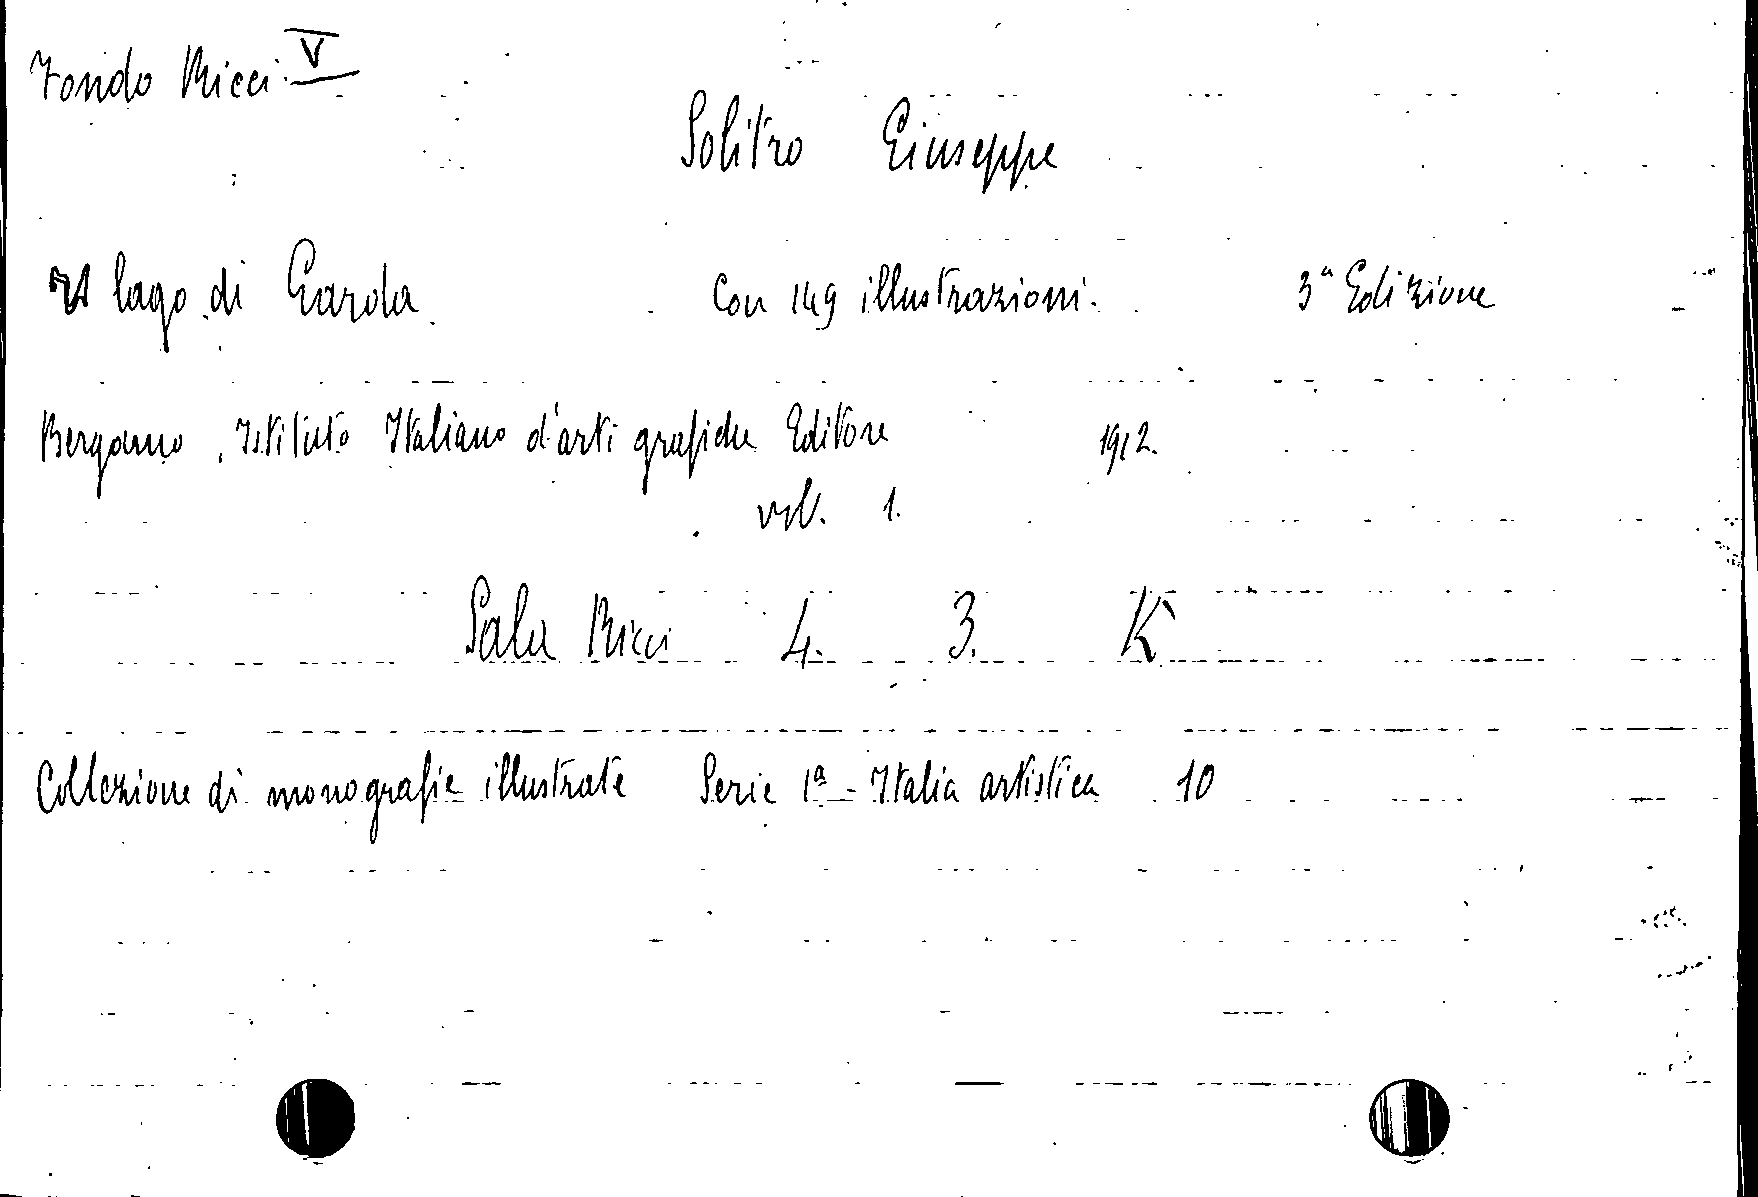 Fondo Ricci V
Solitro Giuseppe
Il lago di Garda con 149 illustrazioni. 3ª Edizione
Bergamo, Istituto Italiano d'arti grafiche Editore 1912.
vol. 1.
Sala Ricci 4. 3. K
Collezione di monografie illustrate Serie 1ª - Italia artistica 10